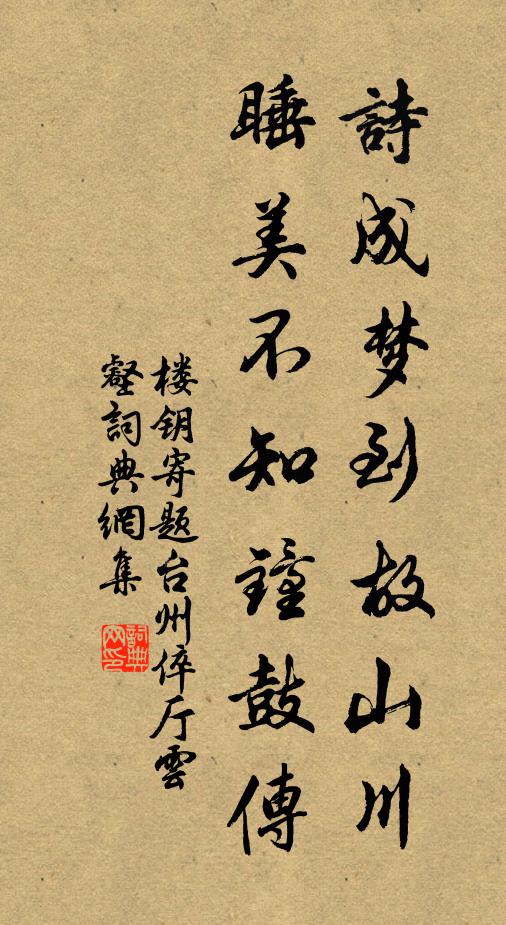 詩成梦到故山川
睡美不知鐘鼓傳
楼钥寄题台州倅厅雲
壑詞典網集
詞典
网印